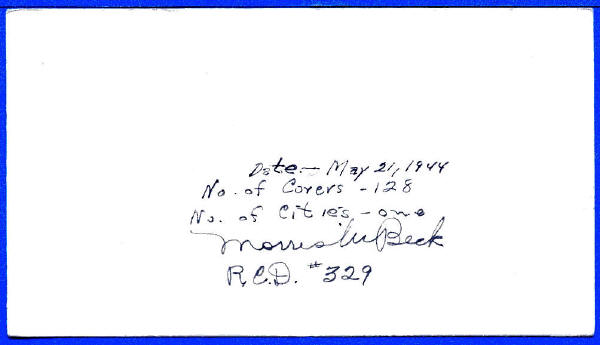 Date - May 21, 1944
No. of Covers - 128
No. of Cities - one
Morris W Beck
R.C.D. #329